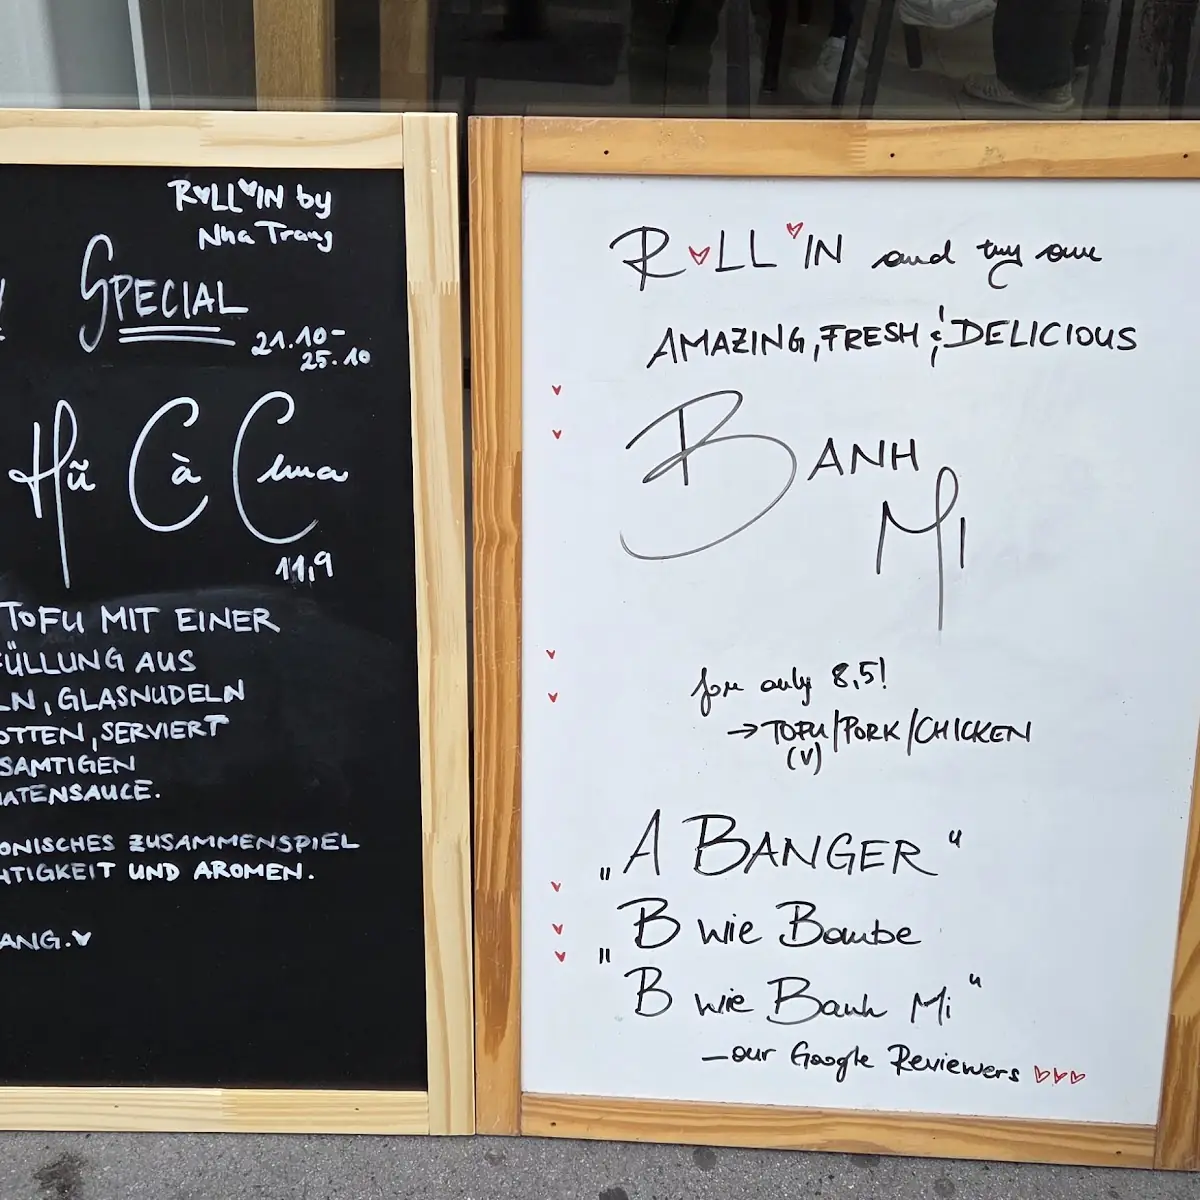 R♥LL♥IN by
Nha Trang
SPECIAL
21.10-
25.10
Hũ Cà Chua
11,9
TOFU MIT EINER
FÜLLUNG AUS
LN, GLASNUDELN
OTTEN, SERVIERT
SAMTIGEN
ATENSAUCE.
ONISCHES ZUSAMMENSPIEL
HTIGKEIT UND AROMEN.
ANG.♥
R♥LL♥IN and try our
AMAZING, FRESH & DELICIOUS
BANH
MI
for only 8,5!
→ TOFU/PORK/CHICKEN
(V)
„A BANGER“
„B wie Bombe
B wie Banh Mi“
—our Google Reviewers ♥♥♥